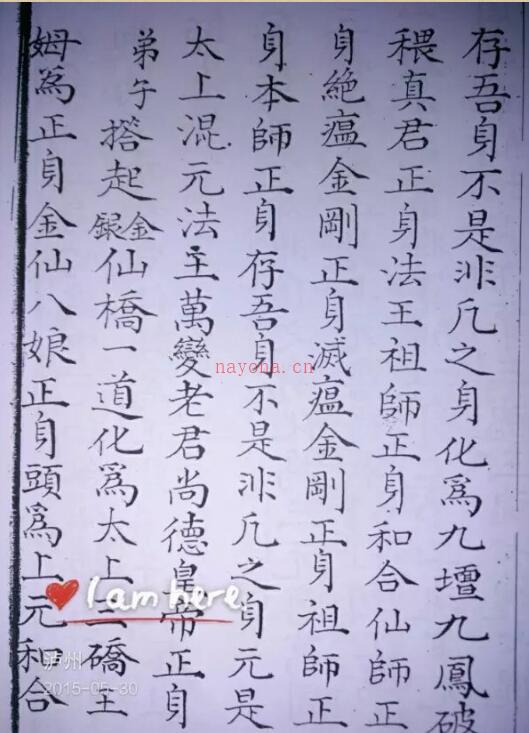 存吾身不是非凡之身化爲九壇九鳳破
穢真君正身法王祖師正身和合仙師正
身絶瘟金剛正身滅瘟金剛正身祖師正
身本師正身存吾身不是非凡之身元是
太上混元法主萬變老君尚德皇帝正身
弟子搭起金銀仙橋一道化爲太上三礄王
姆爲正身金仙八娘正身頭爲上元和合
nayona.cn
I am here
泸州
2015-05-30